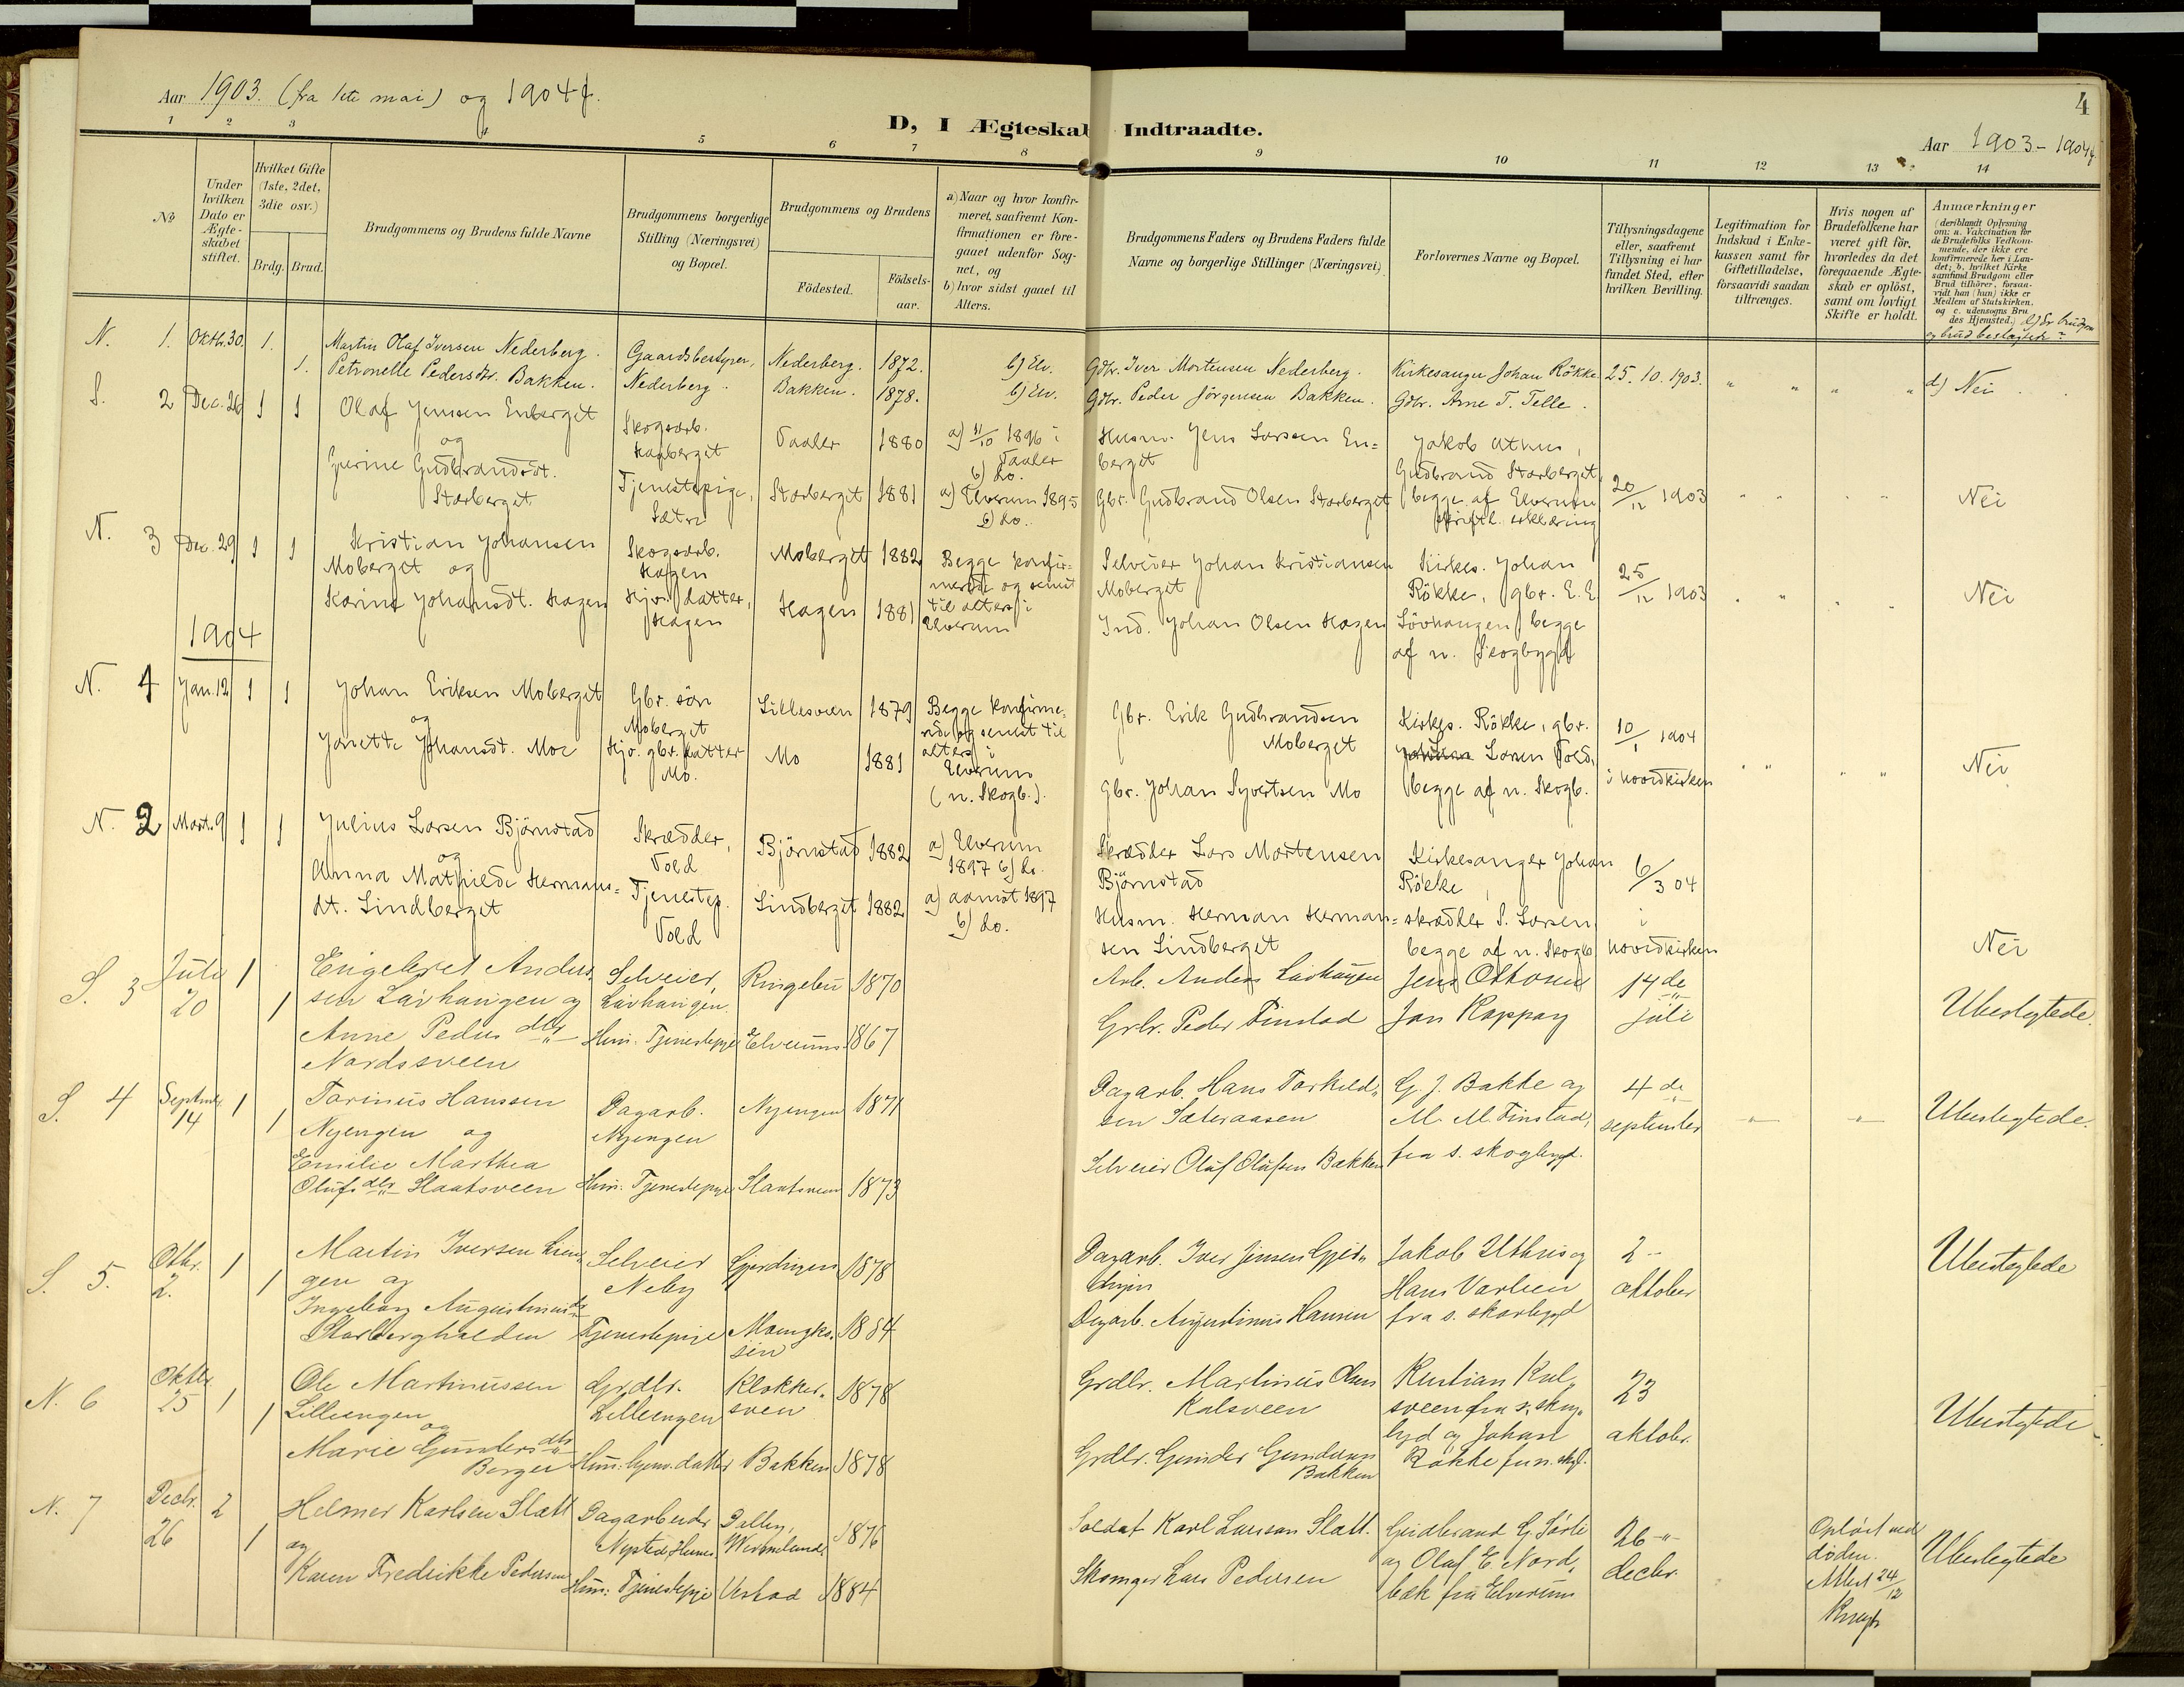 Aar 1903. (fra 1ste mai) og 1904
4
D, I Ægteskab Indtraadte.
Aar 1903-1904
1 2 3 4 5 6 7 8 9 10 11 12 13 14
No
Under hvilken Dato er Ægteskabet stiftet.
Hvilket Gifte (1ste, 2det, 3die osv.)
Brdg. Brud.
Brudgommens og Brudens fulde Navne
Brudgommens borgerlige Stilling (Næringsvei) og Bopæl.
Brudgommens og Brudens
Födested. Födsels-aar.
a) Naar og hvor konfirmeret, saafremt Konfirmationen er foregaaet udenfor Sognet, og
b) hvor sidst gaaet til Alters.
Brudgommens Faders og Brudens Faders fulde Navne og borgerlige Stillinger (Næringsvei).
Forlovernes Navne og Bopæl.
Tillysningsdagene eller, saafremt Tillysning ei har fundet Sted, efter hvilken Bevilling.
Legitimation for Indskud i Enkekassen samt for Giftetilladelse, forsaavidt saadan tiltrænges.
Hvis nogen af Brudefolkene har været gift för, hvorledes da det foregaaende Ægteskab er oplöst, samt om lovligt Skifte er holdt.
Anmærkninger (deriblandt Oplysning om; a. Vakcination for de Brudefolks Vedkommende, der ikke ere konfirmerede her i Landet; b. hvilket Kirkesamfund Brudgom eller Brud tilhörer, forsaavidt han (hun) ikke er Medlem af Statskirken, og c. udensogns Brudes Hjemsted.) d) Er brudgom og brud beslægtede?
N. 1. Oktbr. 30. 1. Martin Olaf Iversen Nederberg. Gaardsbestyrer, Nederberg. 1872. b) Elv. Gdbr. Iver Mortensen Nederberg. Kirkesanger Johan Rökke 25. 10. 1903. " " " " d) Nei.
1. Petronelle Pedersdtr. Bakken. Nederberg. Bakken. 1878. b) Elv. Gdbr. Peder Jörgensen Bakken. Gdbr. Arne T. Telle.
S. 2 Dec. 26 1 1 Olaf Jensen Enberget Skogsarb. Vaaler 1880 a) 11/10 1896 i Vaaler b) do. Husm. Jens Larsen Enberget Jakob Uthus,
og
Gudbrandsdt. Storberget Tjenestepige, Sætre Storberget 1881 a) Elverum 1895 b) do. Gbr. Gudbrand Olsen Storberget Gudbrand Storberget, begge af Elverum skriftl. erklæring 20/12 1903 Nei
N. 3 Dec. 29 1 1 Kristian Johansen Moberget og Skogsarb. Hagen Moberget 1882 Begge konfirmerede og senest til alters i Elverum Selveier Johan Kristiansen Moberget Kirkes. Johan Rökke, gbr. E. E. 25/12 1903 Nei
Karine Johansdt. Hagen Hjv. datter, Hagen Hagen 1881 Ind. Johan Olsen Hagen Lövhaugen begge af n. Skogbygd
1904
N. 4 Jan. 12 1 1 Johan Eriksen Moberget Gbr. sön Moberget Lillesveen 1879 Begge konfirmerede og senest til alters i Elverum (n. Skogb.). Gbr. Erik Gudbrandsen Moberget Kirkes. Rökke, gbr. Larsen Vold, begge af n. Skogb. 10/1 1904 i hovedkirken Nei
og
Janette Johansdt. Moe Hjv. gbr. datter Mo. Mo 1881 Gbr. Johan Syvertsen Mo
N. 2 Marts 9 1 1 Julius Larsen Björnstad Skrædder, Vold Björnstad 1882 a) Elverum 1897 b) do. Skrædder Lars Mortensen Björnstad Kirkesanger Johan Rökke, 6/3 04
og
Anna Mathilde Hermansdt. Lindberget Tjenestep. Vold Lindberget 1882 a) Aamot 1897 b) do. Husm. Herman Hermansen Lindberget skrædder Larsen begge af n. Skogb i hovedkirken Nei
S. 3 Juli 20 1 Engebret Andersen Lavhaugen og Selveier, Lavhaugen Ringebu 1870 Arb. Anders Lavhaugen Jens Ottosen 14de juli Ubeslegtede.
1 Anne Pedersdtr Nordsveen Hus. Tjenestepige Elverum 1867 Grbr. Peder Finstad Jan Kappay
S. 4 Septmbr 14 1 Tarinus Hanssen Nyengen og Dagarb. Nyengen Nyengen 1871 Dagarb. Hans Torkildsen Sæteraasen G. J. Bakke og M. M. Finstad, fra s. skogbygd. 4de september Ubeslegtede.
1 Emilie Marthea Olufsdtr Slaatsveen Hus. Tjenestepige Slaatsveen 1873 Selveier Oluf Olufsen Bakken
S. 5. Otbr. 2. 1 Martin Iversen og Selveier Neby Gjerdingen 1878 Dagarb. Iver Jensen Jakob Uthus og Hans fra s. skogbygd 2 oktober Ubeslegtede
1 Ingeborg Augustinusdtr Storberghalden Tjenestepige 1884 Dagarb. Augustinus Hansen
N. 6 Oktbr 25 1 Ole Martinussen Lillengen og Grdbr. Lillengen Klokkersveen 1878 Grdbr. Martinus Olsen Kalsveen Kristian Kulsveen fra s. skogbygd og Johan Rökke fra n. skgb. 23 oktobr. Ubeslegtede
1 Marie Gundersdtr Berger Hus. datter Bakken 1878 Grdbr. Gunder Gundersen Bakken
N. 7 Decbr. 26 2 Helmer Karlsen Slatt og Dagarbeider Nysted Dalby, Wermland 1876 Soldat Karl Larsson Slatt. Gudbrand G. Sörli og Olaf E. Nordbæk fra Elverum 26 decbr. Oplöst ved döden. Attest 24/12 Ubeslegtede
1 Karen Fredrikke Pedersen Hus. Tjenestepige Vestad 1884 Skomager Lars Pedersen